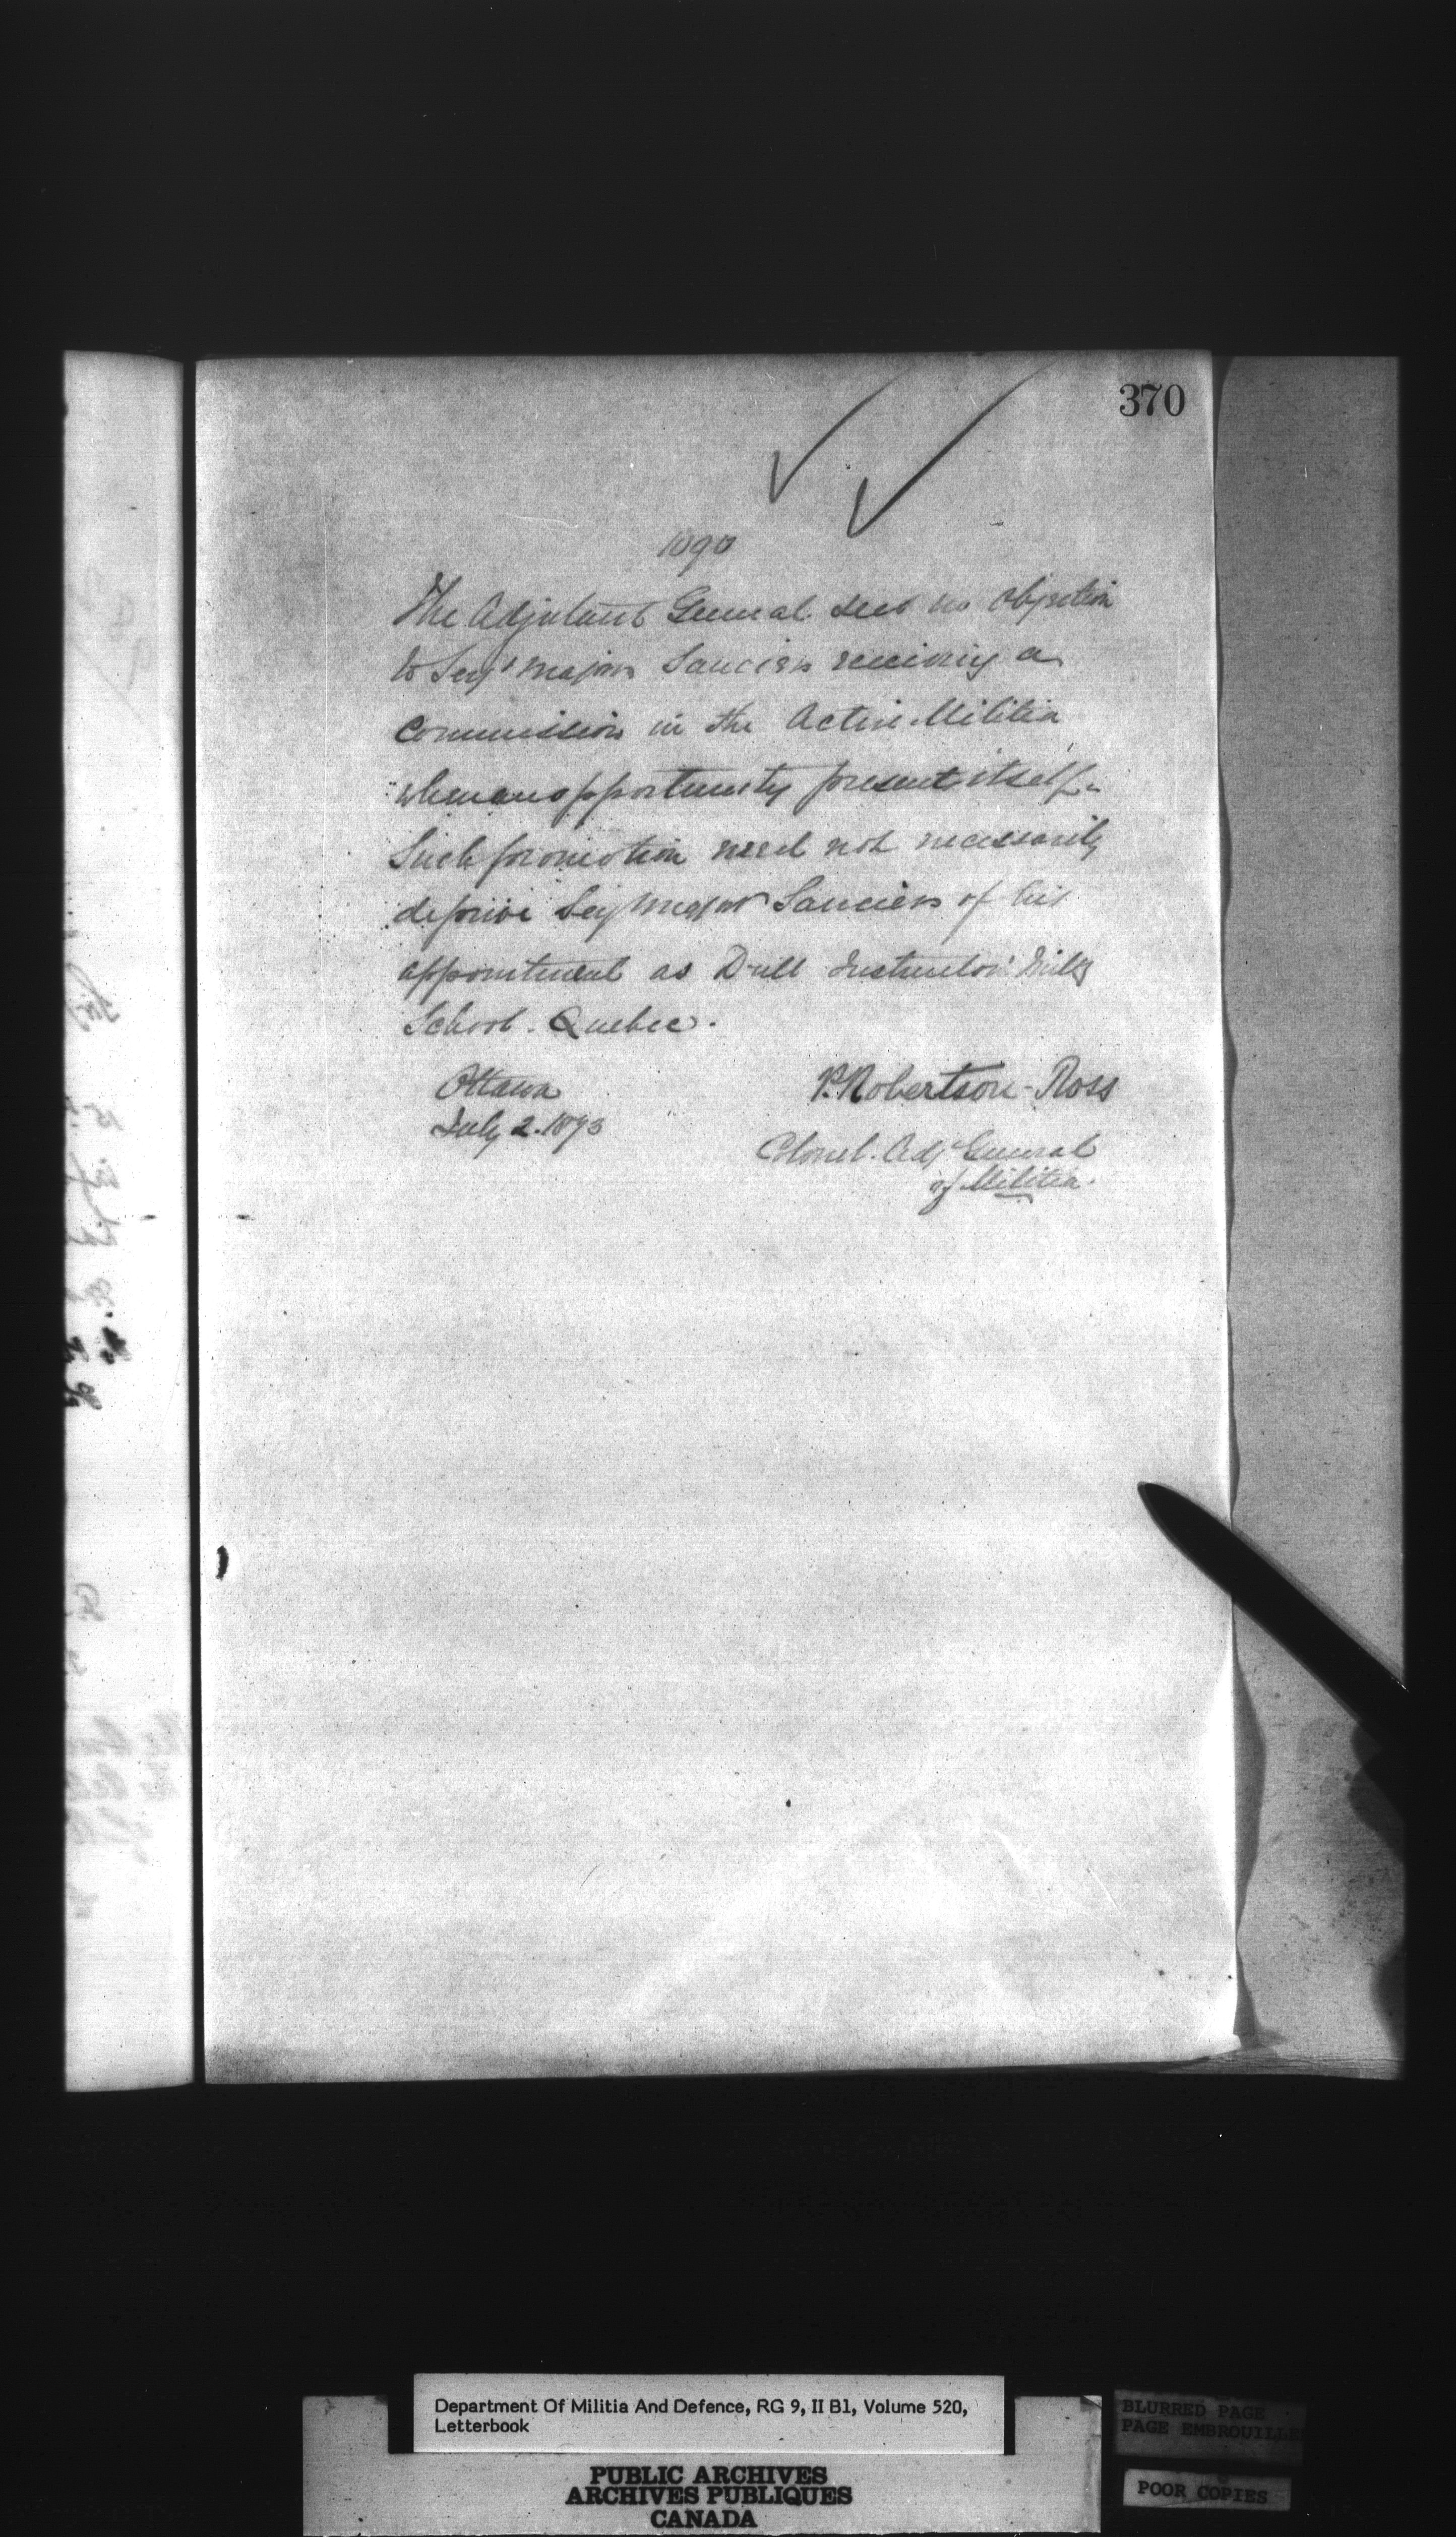 370
1090
The Adjutant General sees no objection
to Serjt Major Saucier receiving a
Commission in the Active Militia
when an opportunity present itself.
Such promotion need not necessarily
deprive Serj Major Saucier of his
appointment as Drill Instructor Mily
School. Quebec.
Ottawa
July 2. 1873
P. Robertson-Ross
Colonel. Adjt General
of Militia.
Department Of Militia And Defence, RG 9, II B1, Volume 520,
Letterbook
PUBLIC ARCHIVES
ARCHIVES PUBLIQUES
CANADA
BLURRED PAGE
PAGE EMBROUILLE
POOR COPIES